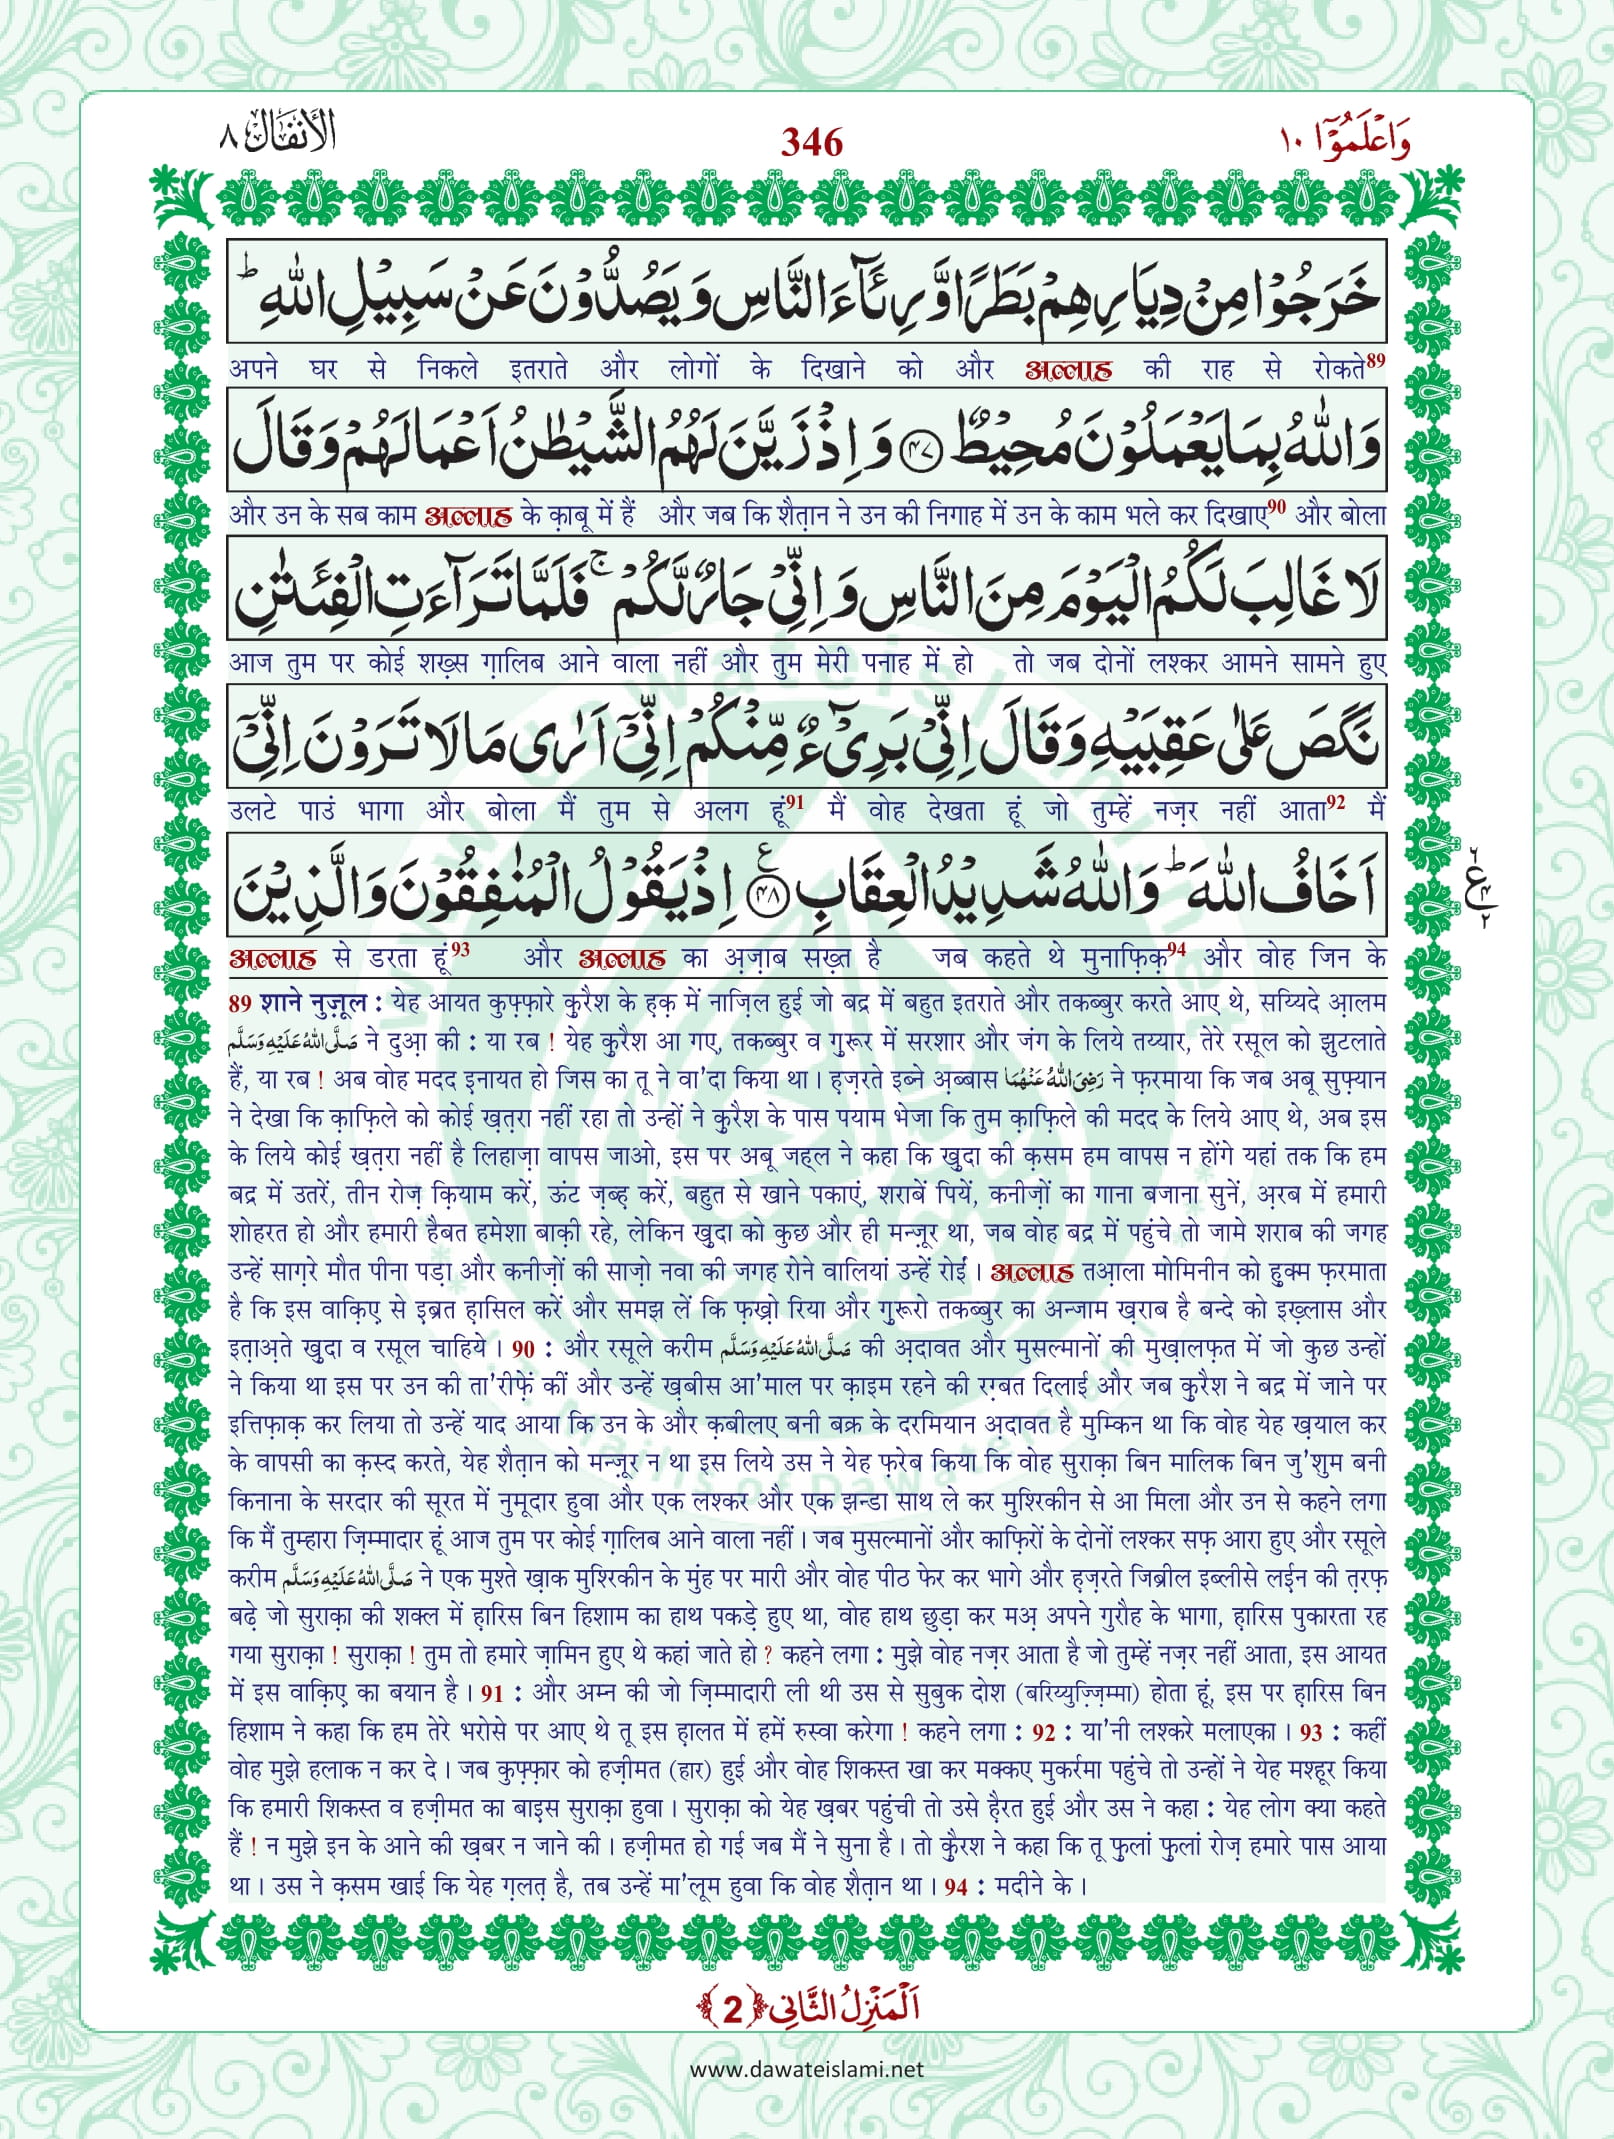 وَاعْلَمُوْۤا ١٠
346
الأنفال ٨
خَرَجُوْا مِنْ دِیَارِهِمْ بَطَرًا وَّ رِئَآءَ النَّاسِ وَ یَصُدُّوْنَ عَنْ سَبِیْلِ اللّٰهِؕ
अपने घर से निकले इतराते और लोगों के दिखाने को और अल्लाह की राह से रोकते89
وَ اللّٰهُ بِمَا یَعْمَلُوْنَ مُحِیْطٌ ﴿۴۷﴾ وَ اِذْ زَیَّنَ لَهُمُ الشَّیْطٰنُ اَعْمَالَهُمْ وَ قَالَ
और उन के सब काम अल्लाह के क़ाबू में हैं और जब कि शैत़ान ने उन की निगाह में उन के काम भले कर दिखाए90 और बोला
لَا غَالِبَ لَكُمُ الْیَوْمَ مِنَ النَّاسِ وَ اِنِّیْ جَارٌ لَّكُمْۚ فَلَمَّا تَرَآءَتِ الْفِئَتٰنِ
आज तुम पर कोई शख़्स ग़ालिब आने वाला नहीं और तुम मेरी पनाह में हो तो जब दोनों लश्कर आमने सामने हुए
نَكَصَ عَلٰى عَقِبَیْهِ وَ قَالَ اِنِّیْ بَرِیْٓءٌ مِّنْكُمْ اِنِّیْۤ اَرٰى مَا لَا تَرَوْنَ اِنِّیْۤ
उलटे पाउं भागा और बोला मैं तुम से अलग हूं91 मैं वोह देखता हूं जो तुम्हें नज़र नहीं आता92 मैं
اَخَافُ اللّٰهَؕ وَ اللّٰهُ شَدِیْدُ الْعِقَابِ ﴿۴۸﴾ ع اِذْ یَقُوْلُ الْمُنٰفِقُوْنَ وَ الَّذِیْنَ
अल्लाह से डरता हूं93 और अल्लाह का अ़ज़ाब सख़्त है जब कहते थे मुनाफ़िक़94 और वोह जिन के
89 शाने नुज़ूल : येह आयत कुफ़्फ़ारे क़ुरैश के ह़क़ में नाज़िल हुई जो बद्र में बहुत इतराते और तकब्बुर करते आए थे, सय्यिदे आ़लम
صَلَّى اللّٰهُ عَلَيْهِ وَسَلَّم ने दुआ़ की : या रब ! येह क़ुरैश आ गए, तकब्बुर व ग़ुरूर में सरशार और जंग के लिये तय्यार, तेरे रसूल को झुटलाते
हैं, या रब ! अब वोह मदद इ़नायत हो जिस का तू ने वा'दा किया था । ह़ज़रते इब्ने अ़ब्बास رَضِىَ اللّٰهُ عَنْهُمَا ने फ़रमाया कि जब अबू सुफ़्यान
ने देखा कि क़ाफ़िले को कोई ख़त़रा नहीं रहा तो उन्हों ने क़ुरैश के पास पयाम भेजा कि तुम क़ाफ़िले की मदद के लिये आए थे, अब इस
के लिये कोई ख़त़रा नहीं है लिहाज़ा वापस जाओ, इस पर अबू जह्ल ने कहा कि ख़ुदा की क़सम हम वापस न होंगे यहां तक कि हम
बद्र में उतरें, तीन रोज़ क़ियाम करें, ऊंट ज़ब्ह़ करें, बहुत से खाने पकाएं, शराबें पियें, कनीज़ों का गाना बजाना सुनें, अ़रब में हमारी
शोहरत हो और हमारी हैबत हमेशा बाक़ी रहे, लेकिन ख़ुदा को कुछ और ही मन्ज़ूर था, जब वोह बद्र में पहुंचे तो जामे शराब की जगह
उन्हें साग़रे मौत पीना पड़ा और कनीज़ों की साज़ो नवा की जगह रोने वालियां उन्हें रोईं । अल्लाह तआ़ला मोमिनीन को हुक्म फ़रमाता
है कि इस वाक़िए से इ़ब्रत ह़ासिल करें और समझ लें कि फ़ख़्रो रिया और ग़ुरूरो तकब्बुर का अन्जाम ख़राब है बन्दे को इख़्लास और
इत़ाअ़ते ख़ुदा व रसूल चाहिये । 90 : और रसूले करीम صَلَّى اللّٰهُ عَلَيْهِ وَسَلَّم की अ़दावत और मुसल्मानों की मुख़ालफ़त में जो कुछ उन्हों
ने किया था इस पर उन की ता'रीफ़ें कीं और उन्हें ख़बीस आ'माल पर क़ाइम रहने की रग़्बत दिलाई और जब क़ुरैश ने बद्र में जाने पर
इत्तिफ़ाक़ कर लिया तो उन्हें याद आया कि उन के और क़बीलए बनी बक्र के दरमियान अ़दावत है मुम्किन था कि वोह येह ख़याल कर
के वापसी का क़स्द करते, येह शैत़ान को मन्ज़ूर न था इस लिये उस ने येह फ़रेब किया कि वोह सुराक़ा बिन मालिक बिन जु'शुम बनी
किनाना के सरदार की सूरत में नुमूदार हुवा और एक लश्कर और एक झन्डा साथ ले कर मुश्रिकीन से आ मिला और उन से कहने लगा
कि मैं तुम्हारा ज़िम्मादार हूं आज तुम पर कोई ग़ालिब आने वाला नहीं । जब मुसल्मानों और काफ़िरों के दोनों लश्कर सफ़ आरा हुए और रसूले
करीम صَلَّى اللّٰهُ عَلَيْهِ وَسَلَّم ने एक मुश्ते ख़ाक मुश्रिकीन के मुंह पर मारी और वोह पीठ फेर कर भागे और ह़ज़रते जिब्रील इब्लीसे लईन की त़रफ़
बढ़े जो सुराक़ा की शक्ल में ह़ारिस बिन हिशाम का हाथ पकड़े हुए था, वोह हाथ छुड़ा कर मअ़ अपने गुरौह के भागा, ह़ारिस पुकारता रह
गया सुराक़ा ! सुराक़ा ! तुम तो हमारे ज़ामिन हुए थे कहां जाते हो ? कहने लगा : मुझे वोह नज़र आता है जो तुम्हें नज़र नहीं आता, इस आयत
में इस वाक़िए का बयान है । 91 : और अम्न की जो ज़िम्मादारी ली थी उस से सुबुक दोश (बरिय्युज़्ज़िम्मा) होता हूं, इस पर ह़ारिस बिन
हिशाम ने कहा कि हम तेरे भरोसे पर आए थे तू इस ह़ालत में हमें रुस्वा करेगा ! कहने लगा : 92 : या'नी लश्करे मलाएका । 93 : कहीं
वोह मुझे हलाक न कर दे । जब कुफ़्फ़ार को हज़ीमत (हार) हुई और वोह शिकस्त खा कर मक्कए मुकर्रमा पहुंचे तो उन्हों ने येह मश्हूर किया
कि हमारी शिकस्त व हज़ीमत का बाइस सुराक़ा हुवा । सुराक़ा को येह ख़बर पहुंची तो उसे ह़ैरत हुई और उस ने कहा : येह लोग क्या कहते
हैं ! न मुझे इन के आने की ख़बर न जाने की । हज़ीमत हो गई जब मैं ने सुना है । तो क़ुरैश ने कहा कि तू फ़ुलां फ़ुलां रोज़ हमारे पास आया
था । उस ने क़सम खाई कि येह ग़लत़ है, तब उन्हें मा'लूम हुवा कि वोह शैत़ान था । 94 : मदीने के ।
اَلْمَنْزِلُ الثَّانِی ﴿2﴾
www.dawateislami.net